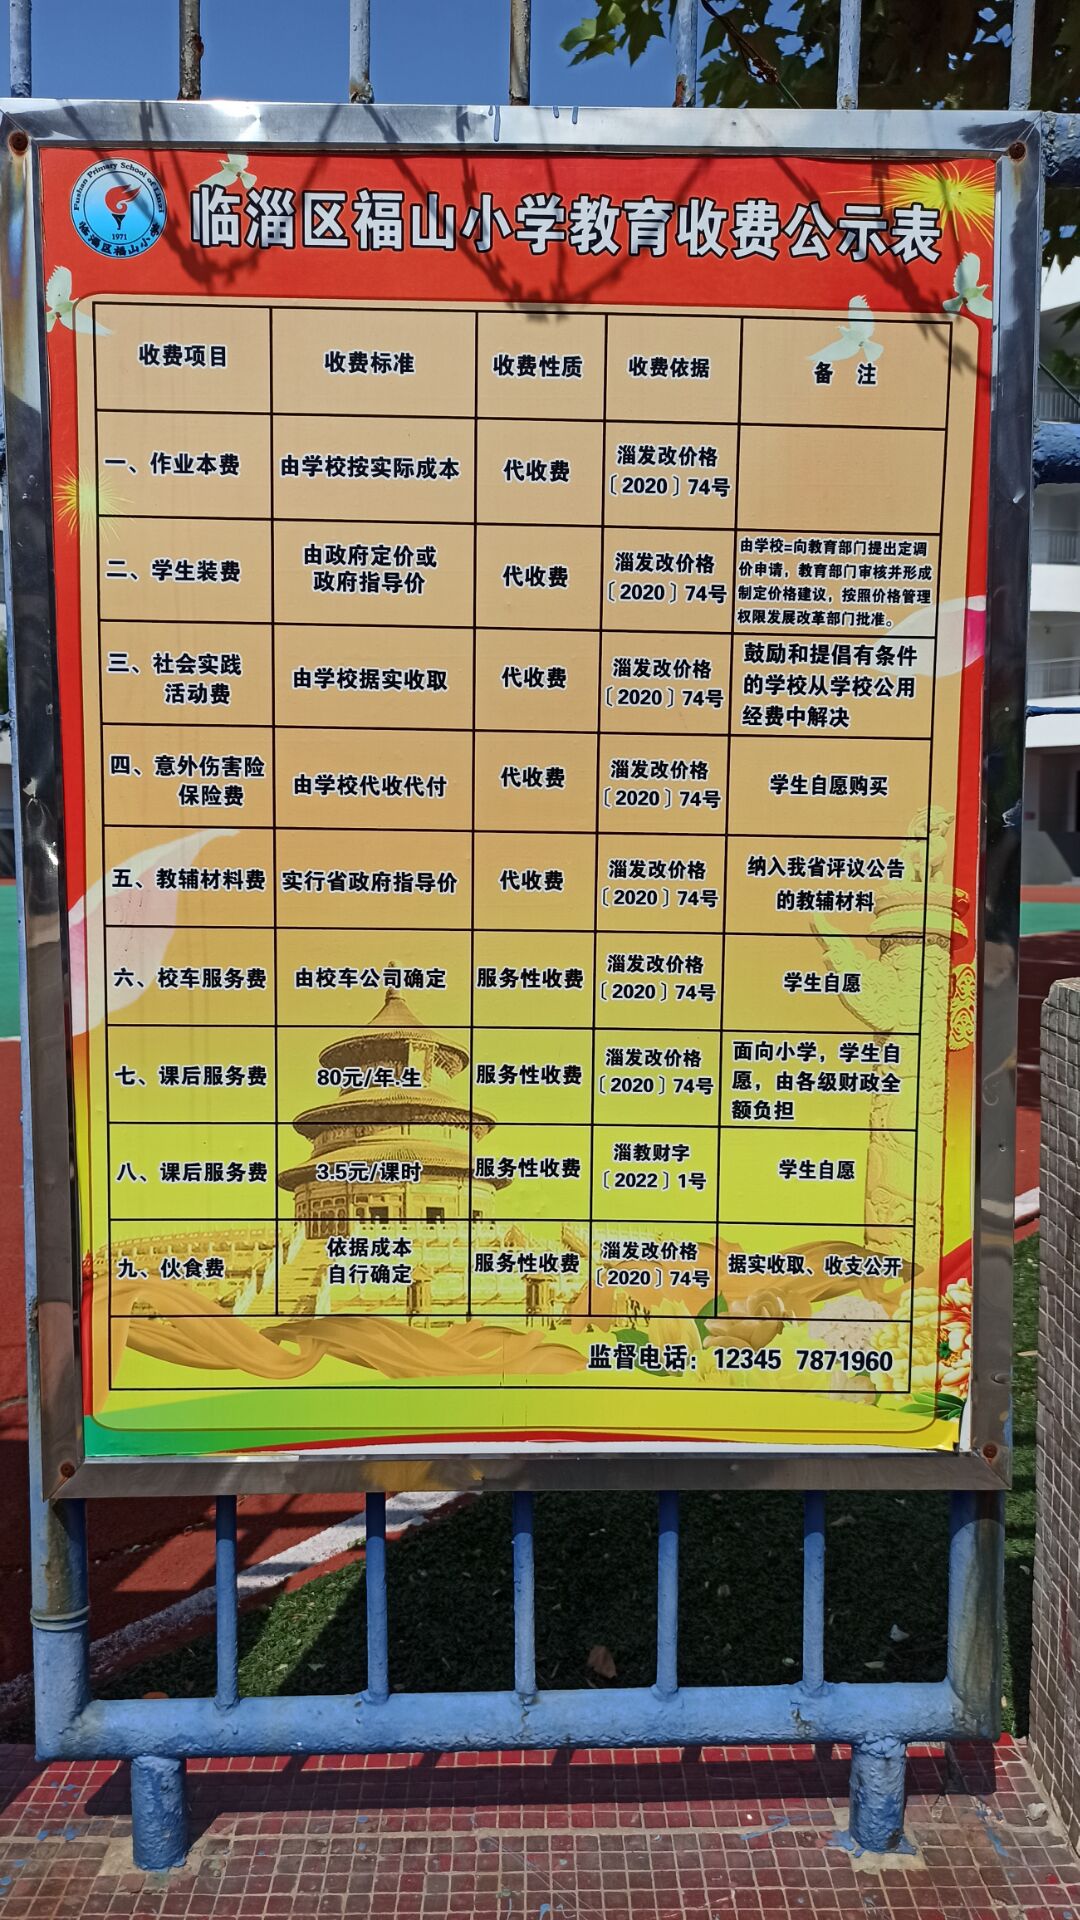 Fushan Primary School of Linzi
1971
临淄区福山小学
临淄区福山小学教育收费公示表
收费项目 收费标准 收费性质 收费依据 备 注
一、作业本费 由学校按实际成本 代收费 淄发改价格
〔2020〕74号
二、学生装费 由政府定价或
政府指导价 代收费 淄发改价格
〔2020〕74号 由学校=向教育部门提出定调
价申请，教育部门审核并形成
制定价格建议，按照价格管理
权限发展改革部门批准。
三、社会实践
活动费 由学校据实收取 代收费 淄发改价格
〔2020〕74号 鼓励和提倡有条件
的学校从学校公用
经费中解决
四、意外伤害险
保险费 由学校代收代付 代收费 淄发改价格
〔2020〕74号 学生自愿购买
五、教辅材料费 实行省政府指导价 代收费 淄发改价格
〔2020〕74号 纳入我省评议公告
的教辅材料
六、校车服务费 由校车公司确定 服务性收费 淄发改价格
〔2020〕74号 学生自愿
七、课后服务费 80元/年.生 服务性收费 淄发改价格
〔2020〕74号 面向小学，学生自
愿，由各级财政全
额负担
八、课后服务费 3.5元/课时 服务性收费 淄教财字
〔2022〕1号 学生自愿
九、伙食费 依据成本
自行确定 服务性收费 淄发改价格
〔2020〕74号 据实收取、收支公开
监督电话：12345 7871960